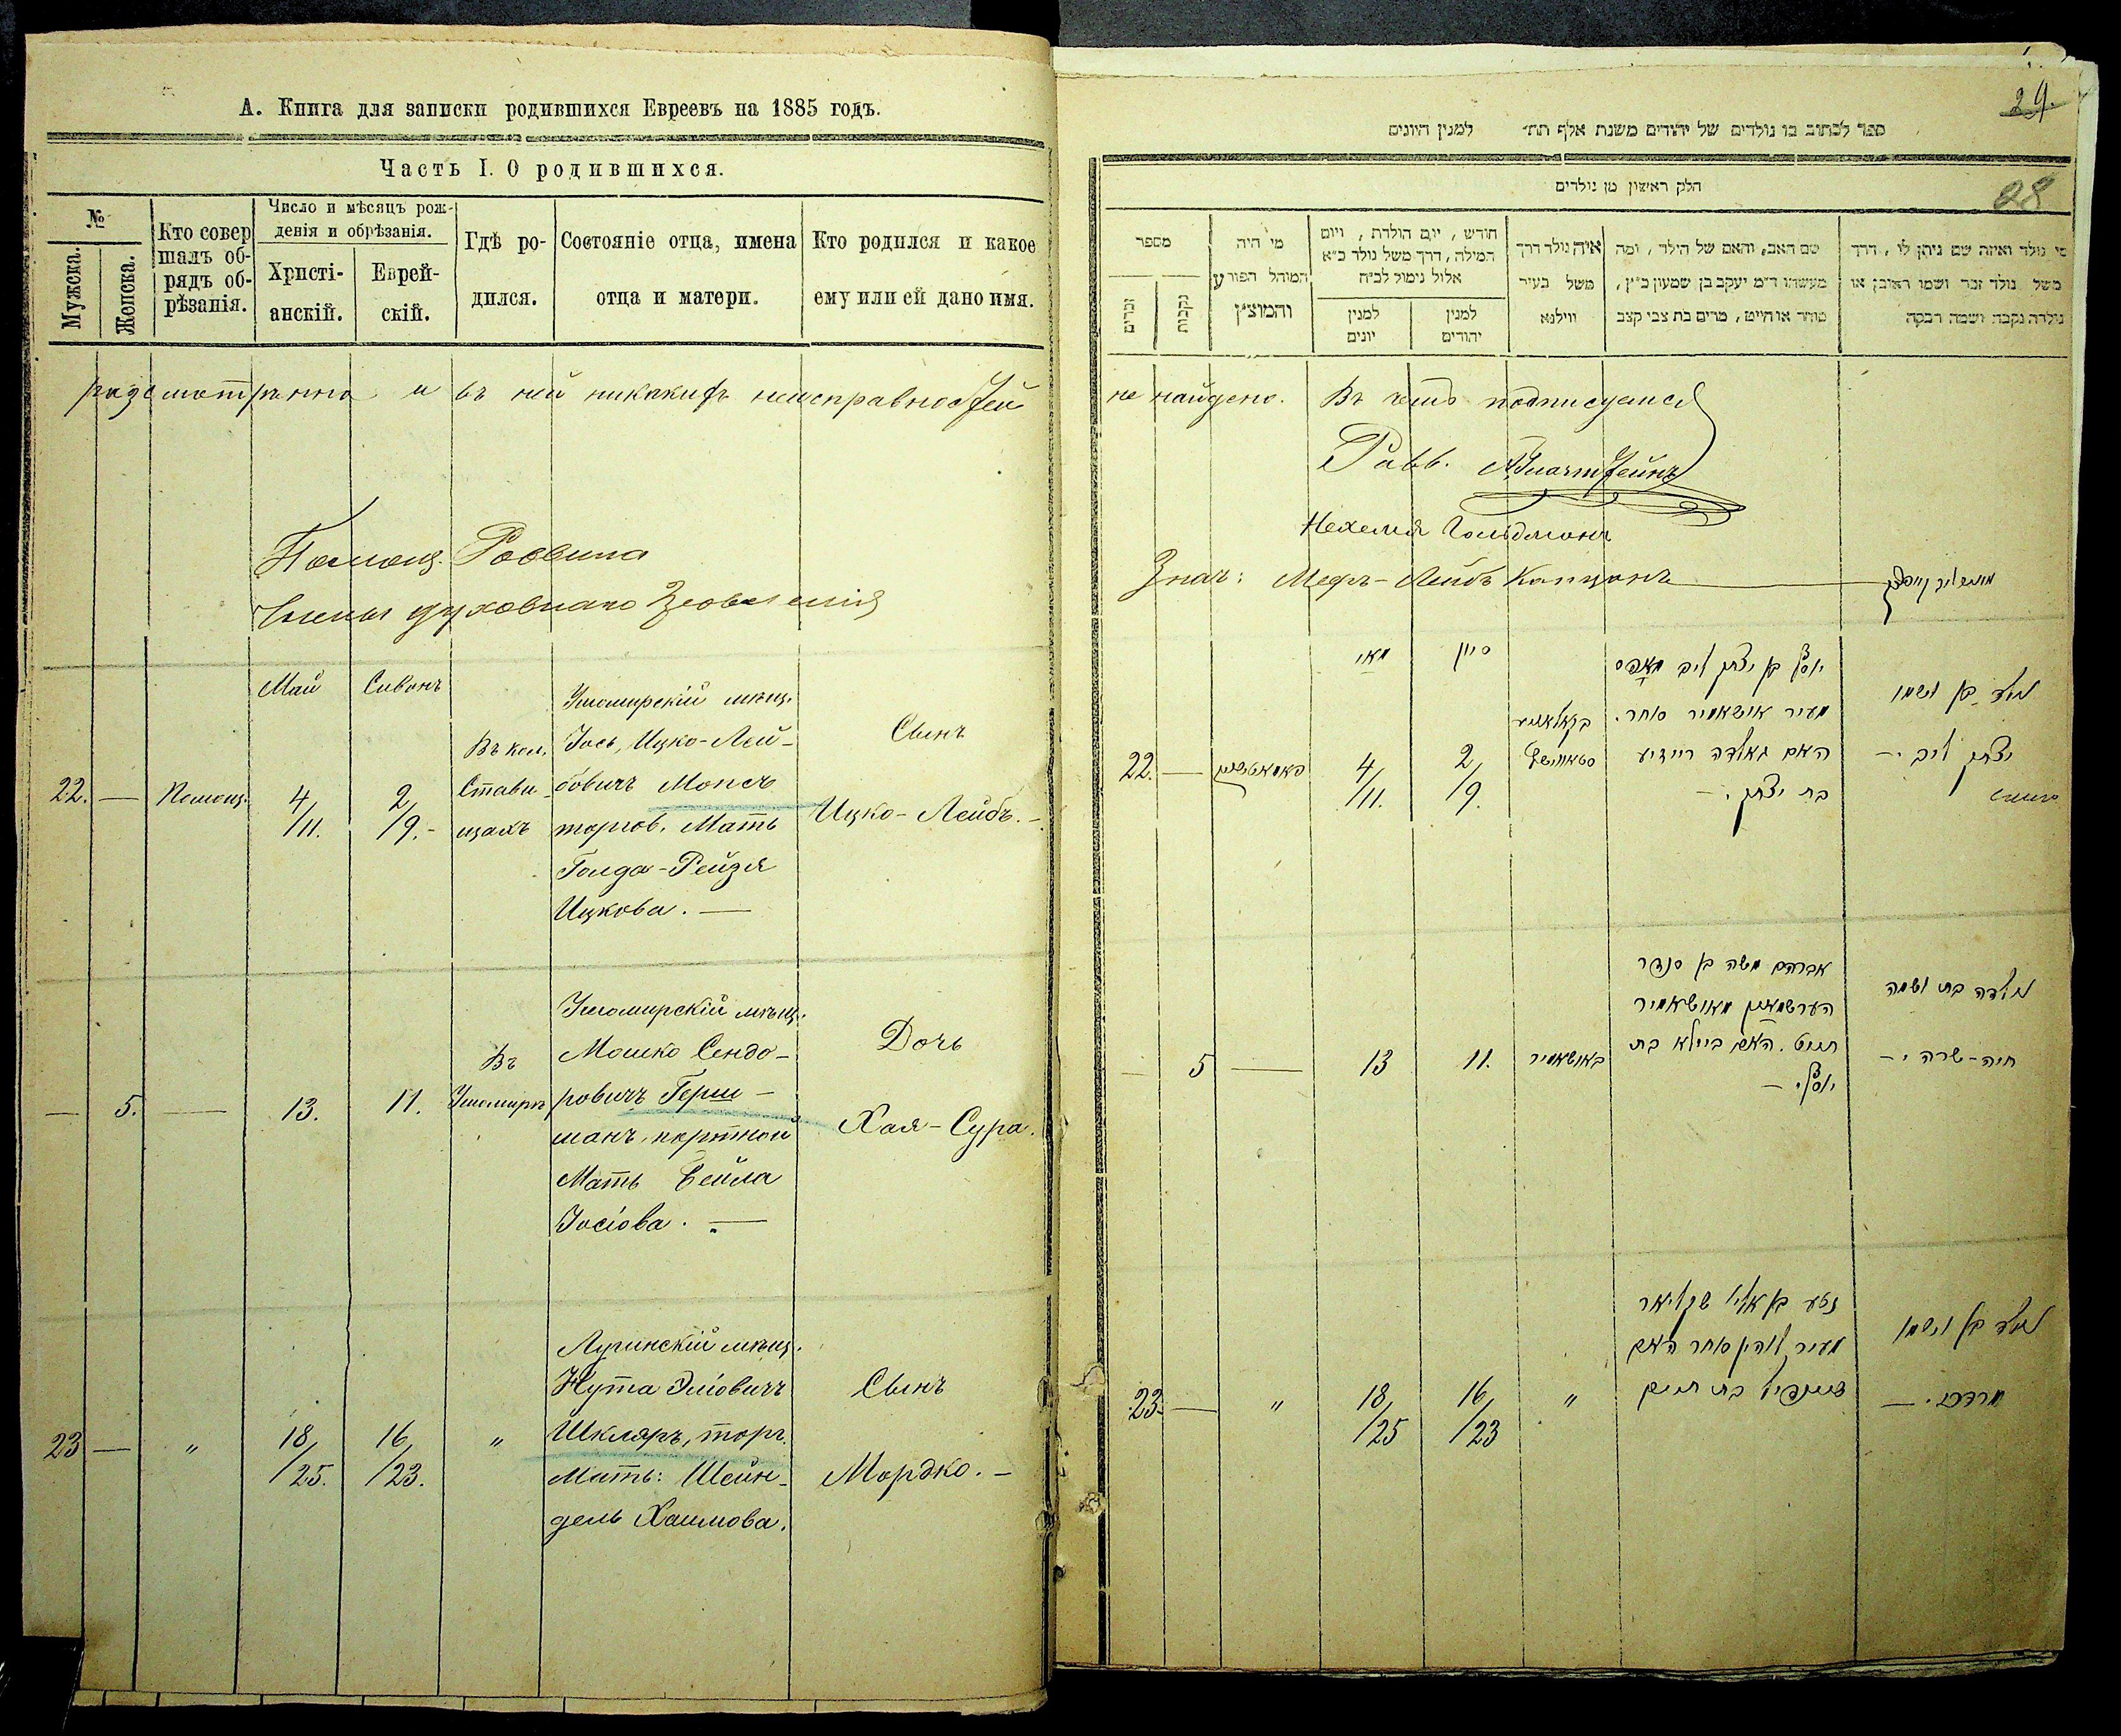 А. Книга для записки родившихся Евреевъ на 1885 годъ.
Часть I. О родившихся.
№
Мужска.
Женска.
Кто совер
шалъ об-
рядъ об-
рѣзанія.
Число и мѣсяцъ рож-
денія и обрѣзанія.
Христі-
анскій.
Еврей-
скій.
Гдѣ ро-
дился.
Состояніе отца, имена
отца и матери.
Кто родился и какое
ему или ей дано имя.
разсмотрѣнна и въ ней никакихъ неисправностей
Помощ. Раввина
Члены духовнаго
Май
Сиванъ
22.
—
Помощ.
4/11.
2/9.-
Въ кол.
Стави-
щахъ
Ушомирскій мѣщ.
Іось, Ицко-Лей-
бовичъ Мопсъ
торгов. Мать
Голда-Рейзя
Ицкова. —
Сынъ
Ицко-Лейбъ. -
—
5.
—
13.
11.
Въ
Ушомирѣ
Ушомирскій мѣщ.
Мошко Сендо-
ровичъ Герш-
манъ, портной
Мать Бейла
Іосіова. —
Дочь
Хая-Сура.
23
—
"
18/25.
16/23.
"
Лугинскій мѣщ.
Нута Эліовичъ
Шкляръ, торг.
Мать: Шейн-
дель Хаимова.
Сынъ
Мордко. -
29.
28
ספר לכתוב בו נולדים של יהודים משנת אלף תת׳ למנין היונים
חלק ראשון מן נולדים
מספר
זכרים
נקבות
מי היה
המוהל הפורע
והמוצץ
חודש, יום הולדת, ויום
המילה, דרך משל נולד כ״א
אלול נימול לב״ח
למנין
יונים
למנין
יהודים
איה נולד דרך
משל בעיר
ווילנא
שם האב, והאם של הילד, ומה
מעשהו ד״מ יעקב בן שמעון כ״ץ,
סוחר או חייט, מרים בת צבי קצב
מי נולד ואיזה שם ניתן לו, דרך
משל נולד זכר ושמו ראובן או
נולדה נקבה ושמה רבקה
не найдено. Въ чемъ подписуемся
Равв.
Нехемія Гольдманъ
Знач: Мееръ-Лейбъ Капцанъ
מאי
סיון
22.
—
4/11.
2/9.
יוסף בן יצחק ליב מאפס
מעיר אושאמיר סוחר.
האם גאלדה רייזיע
בת יצחק. —
נולד בן ושמו
יצחק ליב. —
—
5
—
13
11.
באושאמיר
אברהם משה בן סנדר
הערשמאן מאושאמיר
חייט. האם ביילא בת
יוסף. —
נולדה בת ושמה
חיה-שרה. —
23.
—
"
18/25
16/23
"
נטע בן אליי שקליאר
מעיר לוהין סוחר האם
שיינדיל בת חיים
נולד בן ושמו
מרדכי. —